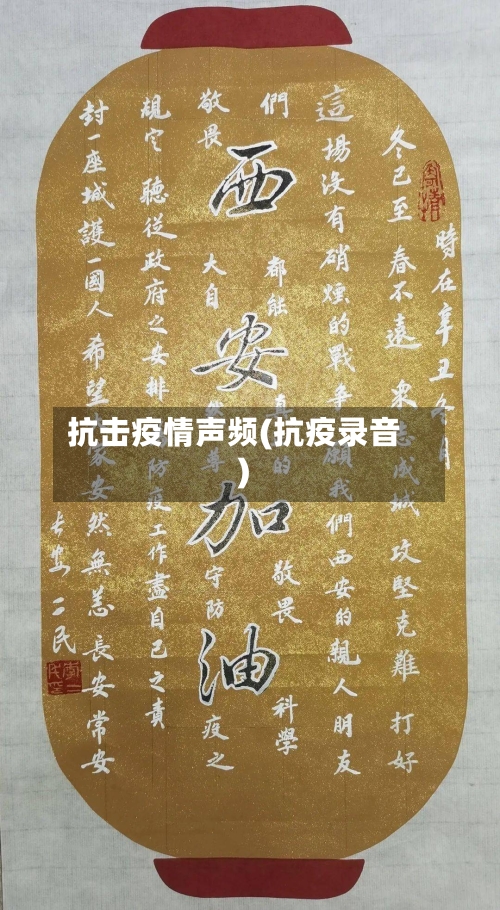 抗击疫情声频(抗疫录音
)
時在辛丑冬月
冬已至 春不遠 眾志成城 攻堅克難 打好
這場沒有硝煙的戰爭 願我們西安的親人朋友
們 都能 真的 敬畏 科學
西安加油
敬畏 大自 守防 疫之
規定 聽從政府之安排 防疫工作盡自己之責
封一座城護一國人 希望 家安然無恙 長安常安
民